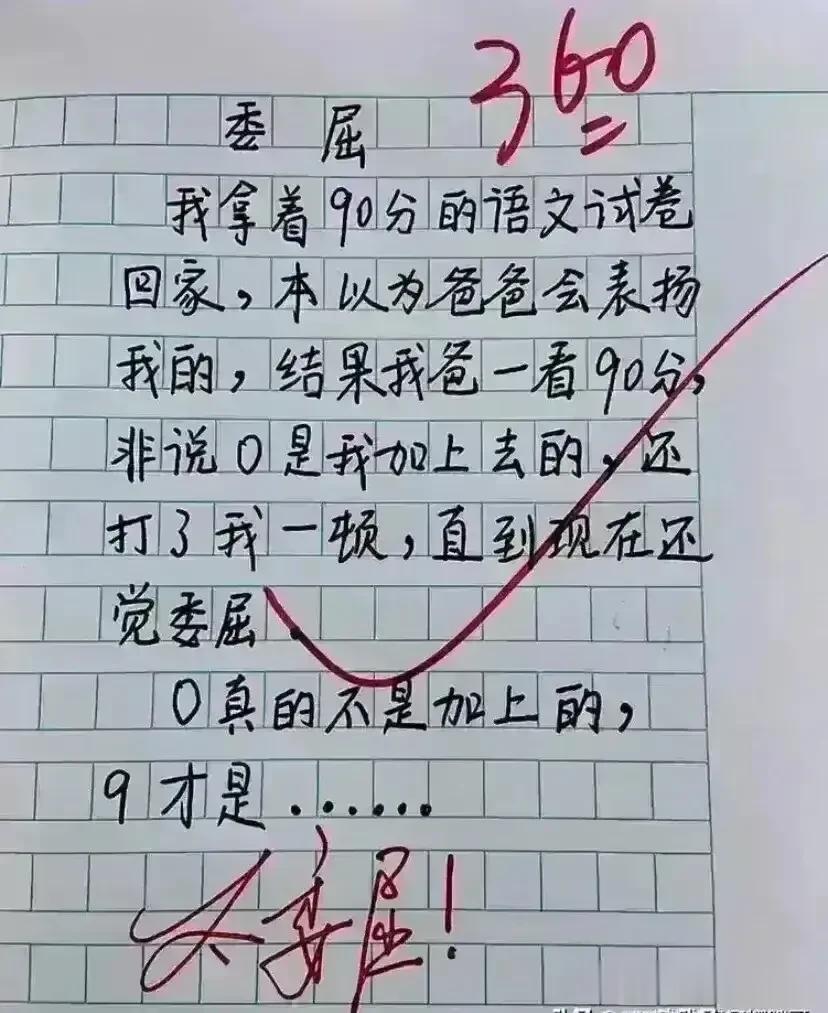 360
委屈
我拿着90分的语文试卷
回家，本以为爸爸会表扬
我的，结果我爸一看90分，
非说0是我加上去的，还
打了我一顿，直到现在还
觉委屈.
0真的不是加上的，
9才是......
太委屈!